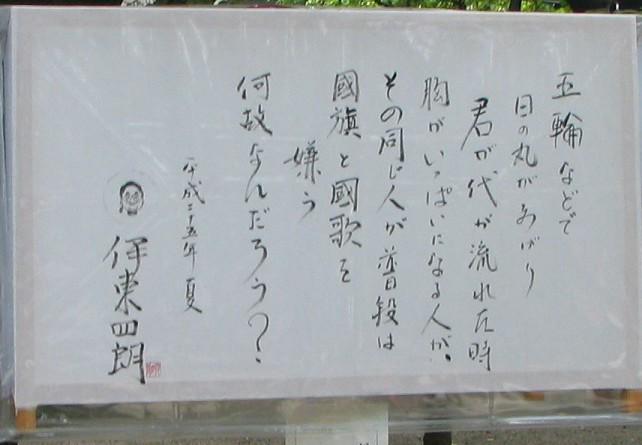 五輪などで
日の丸があがり
君が代が流れた時
胸がいっぱいになる人が、
その同じ人が普段は
國旗と國歌を
嫌う
何故なんだろう?
平成二十五年夏
伊東四朗